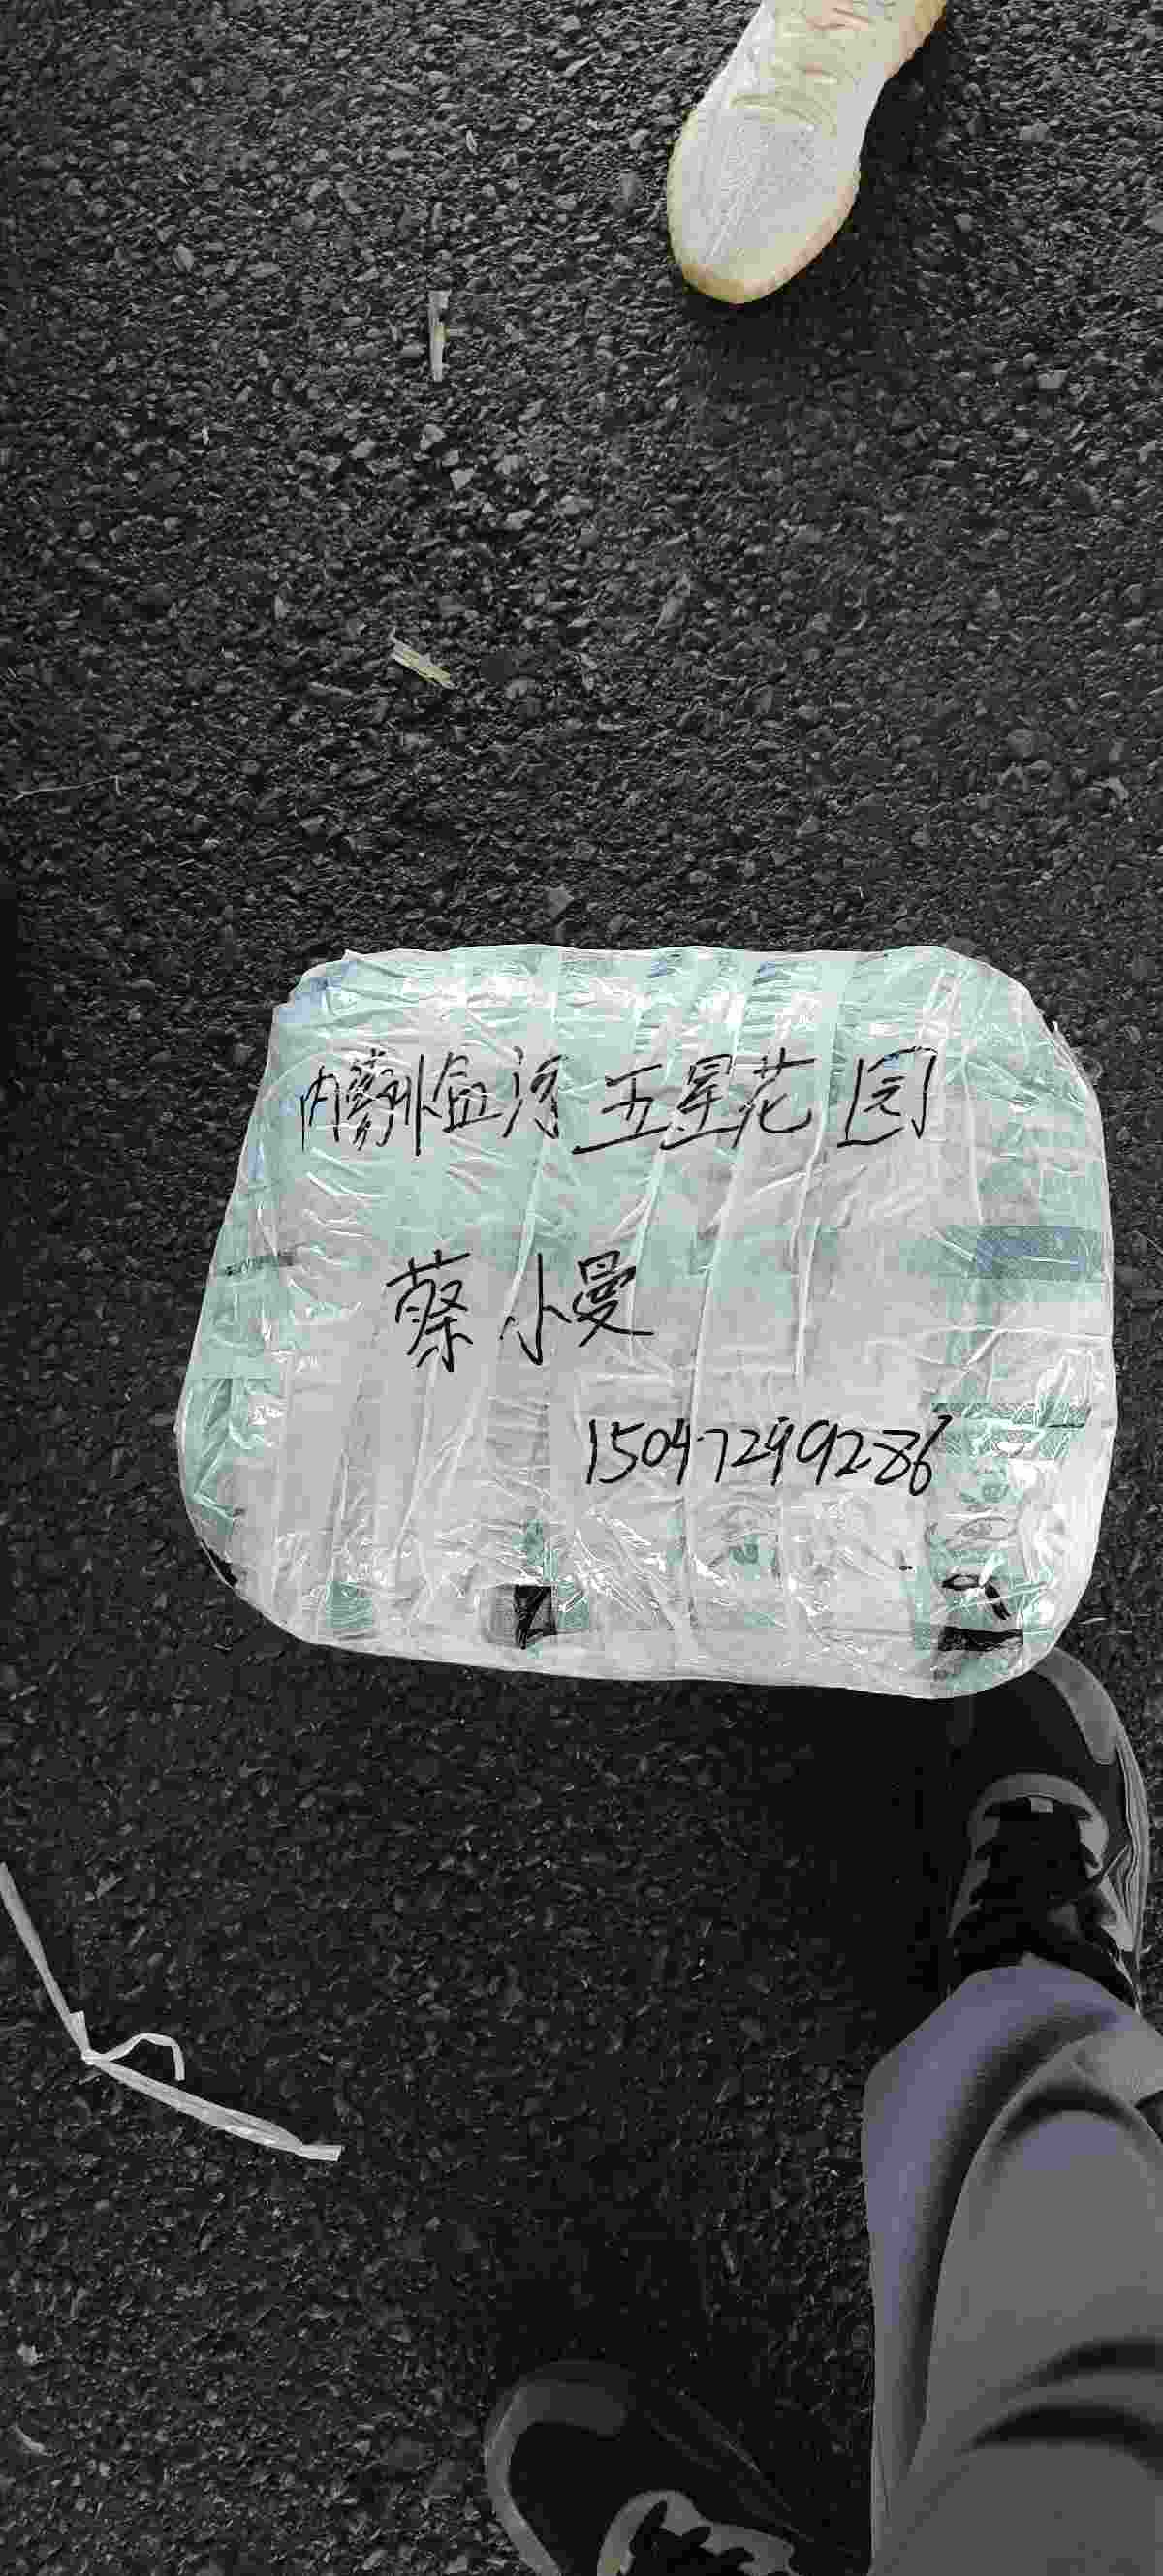 内蒙临河五星花园
蔡小曼
15047299286